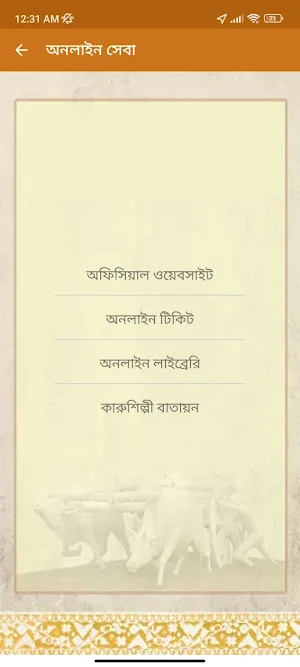 12:31 AM
71
অনলাইন সেবা
অফিসিয়াল ওয়েবসাইট
অনলাইন টিকিট
অনলাইন লাইব্রেরি
কারুশিল্পী বাতায়ন